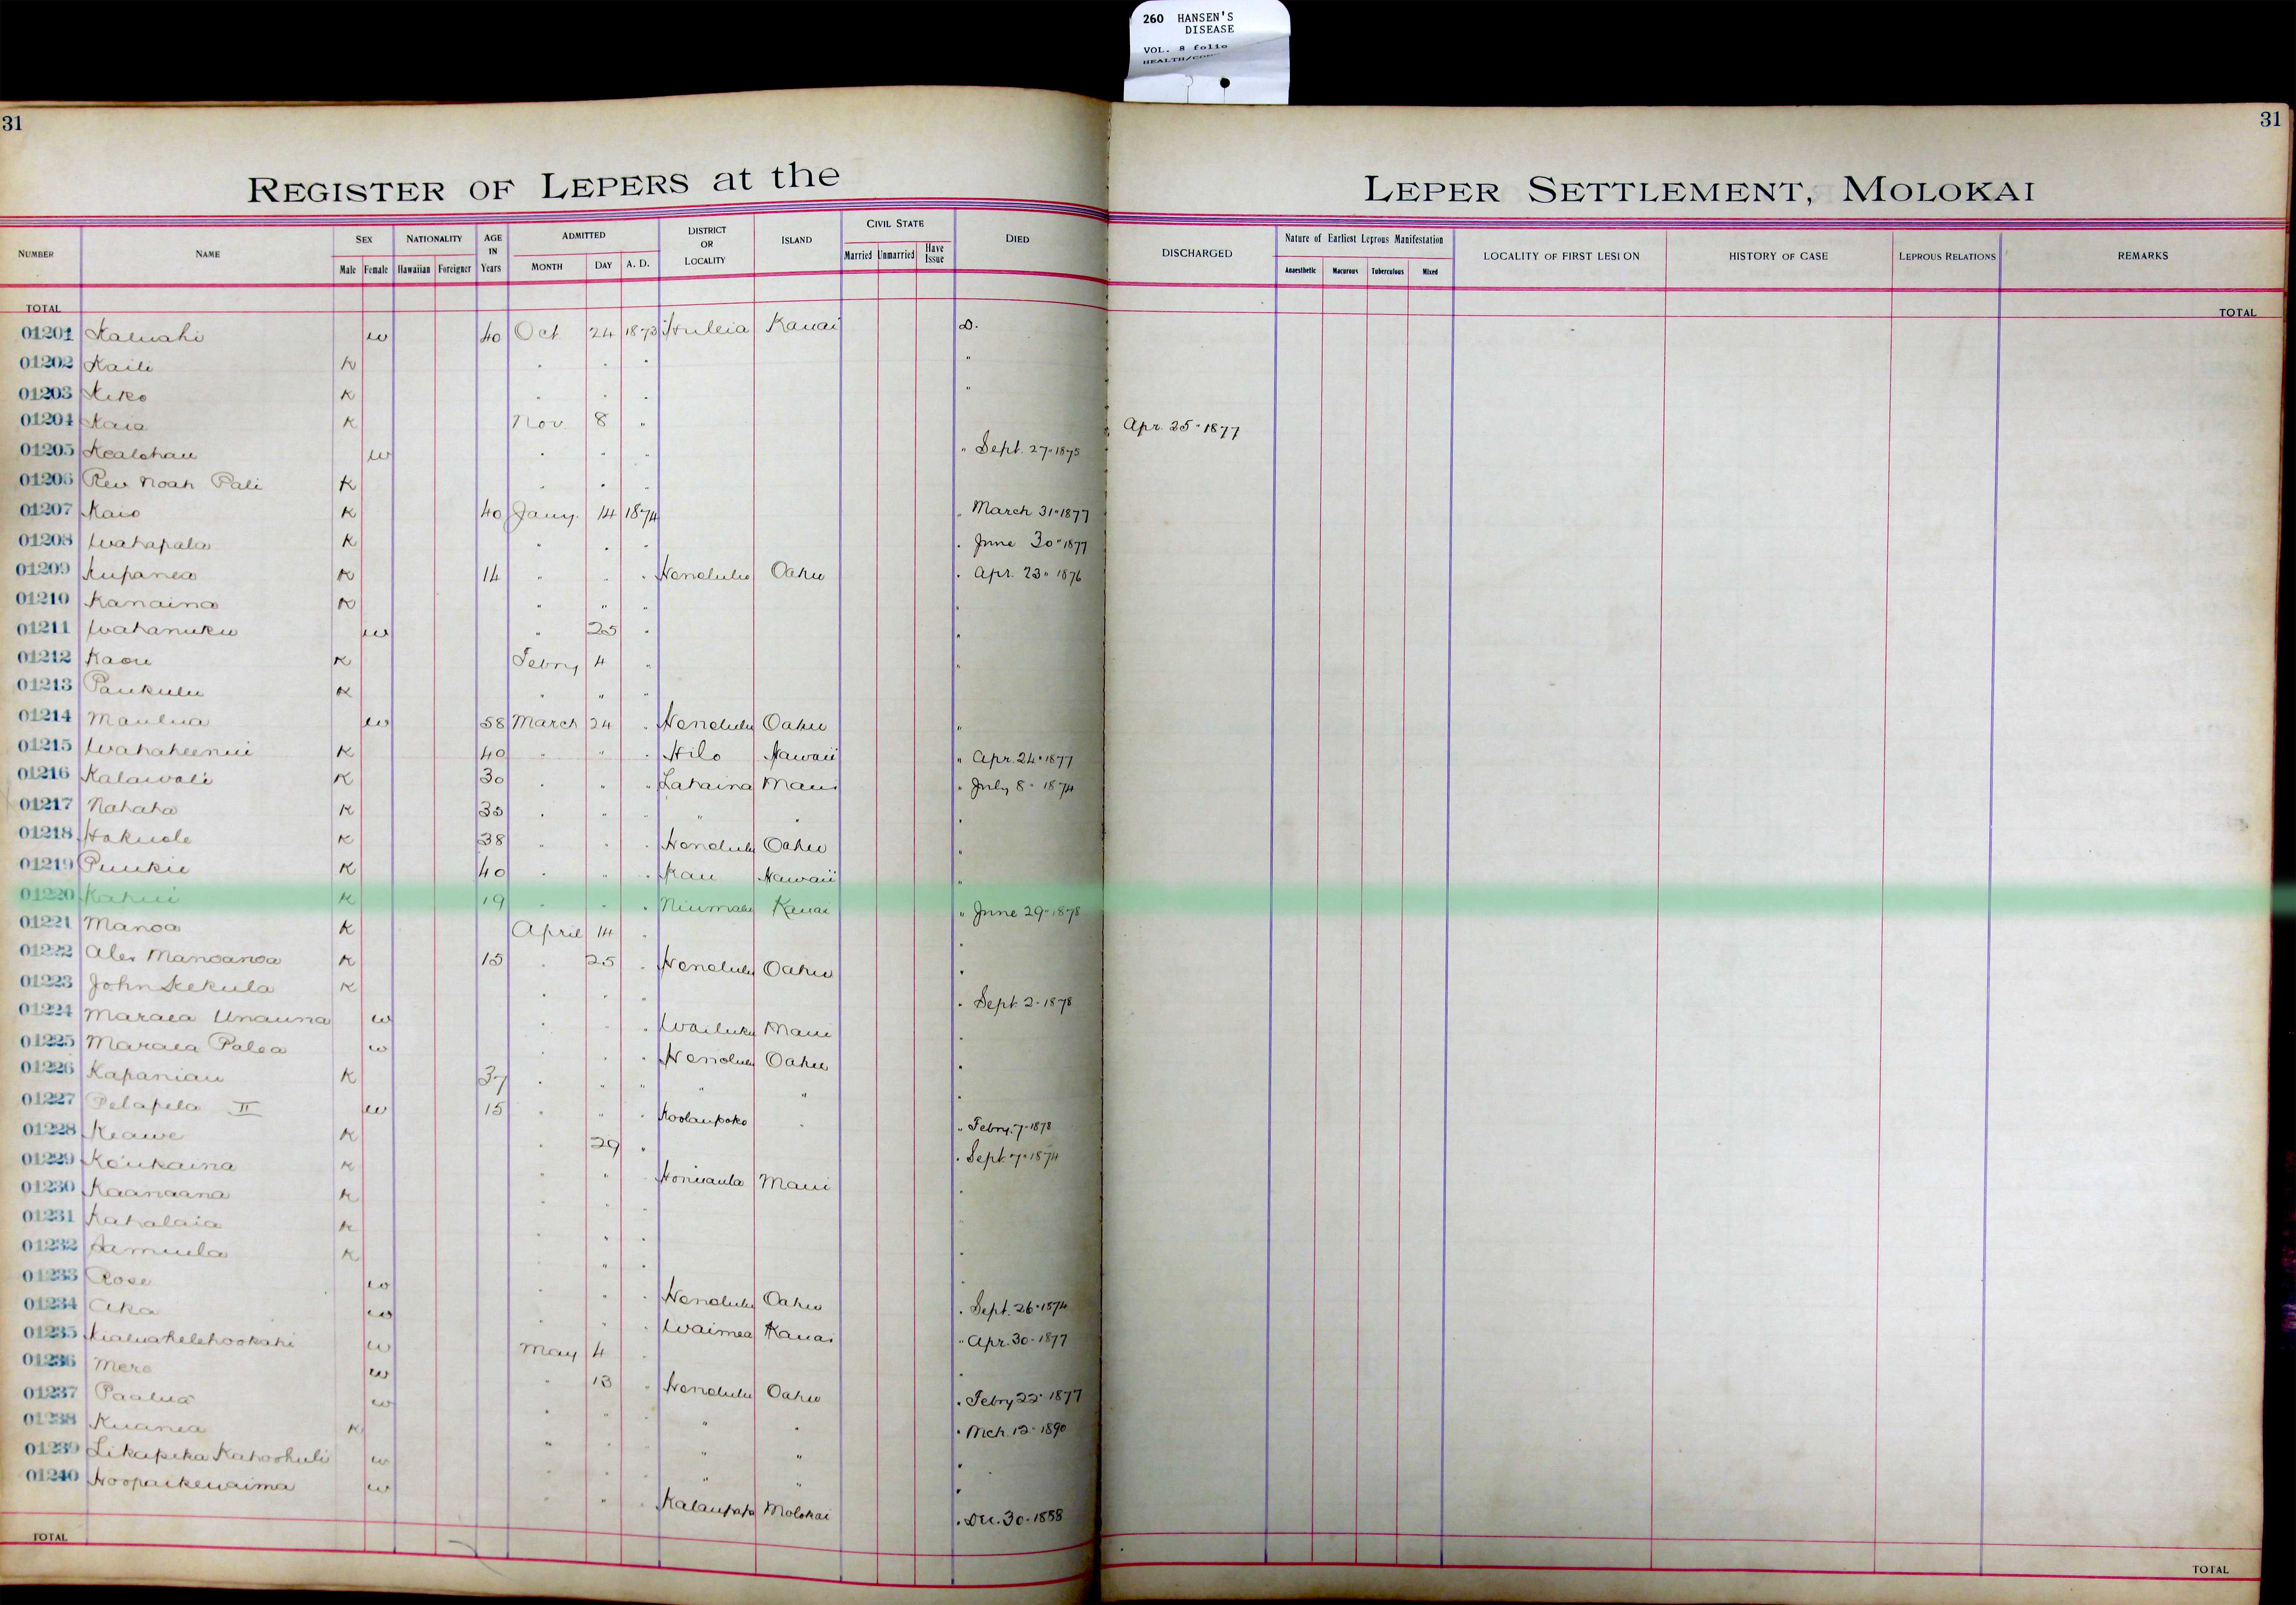 260 HANSEN'S
DISEASE
VOL. 8 folio
31
31
REGISTER OF LEPERS at the
LEPER SETTLEMENT, MOLOKAI
NUMBER NAME SEX Male Female NATIONALITY Hawaiian Foreigner AGE IN Years ADMITTED MONTH DAY A. D. DISTRICT OR LOCALITY ISLAND CIVIL STATE Married Unmarried Have Issue DIED DISCHARGED Nature of Earliest Leprous Manifestation Anaesthetic Macurous Tuberculous Mixed LOCALITY OF FIRST LESION HISTORY OF CASE LEPROUS RELATIONS REMARKS
TOTAL TOTAL
01201 Kaluahi w 40 Oct 24 1873 Huleia Kauai D.
01202 Kaili K " " " "
01203 Keko K " " " "
01204 Kaia K Nov 8 " Apr. 25" 1877
01205 Kealohau w " " " " Sept. 27" 1875
01206 Rev Noah Pali K " " "
01207 Kaio K 40 Jany. 14 1874 " March 31" 1877
01208 Wahapala K " " " " June 30" 1877
01209 Kupanea K 14 " " " Honolulu Oahu " Apr. 23" 1876
01210 Kanaina K " " " "
01211 Wahanuku w " 25 " "
01212 Kaou K Febry 4 " "
01213 Paukulu K " " "
01214 Maulua w 58 March 24 " Honolulu Oahu "
01215 Wahaheenui K 40 " " " Hilo Hawaii " Apr. 24" 1877
01216 Kalawali K 30 " " " Lahaina Maui " July 8" 1874
01217 Nahaha K 35 " " " " " "
01218 Hakuole K 38 " " " Honolulu Oahu "
01219 Puukie K 40 " " " Kau Hawaii "
01220 Kahui K 19 " " " Niumalu Kauai " June 29" 1878
01221 Manoa K April 14 " "
01222 Alex Manoanoa K 15 " 25 " Honolulu Oahu "
01223 John Kekula K " " " " Sept. 2" 1878
01224 Maraea Unauna w " " " Wailuku Maui "
01225 Maraea Palea w " " " Honolulu Oahu "
01226 Kapaniau K 37 " " " " " "
01227 Pelapela II w 15 " " " Koolaupoko " " Febry. 7" 1878
01228 Keawe K " 29 " " Sept. 7" 1874
01229 Keukaina K " " " Honuaula Maui "
01230 Kaanaana K " " "
01231 Kahalaia K " " " "
01232 Samuela K " " "
01233 Rose w " " " Honolulu Oahu " Sept. 26" 1874
01234 Aka w " " " Waimea Kauai " Apr. 30" 1877
01235 Kialuahelehookahi w May 4 " "
01236 Mere w " 13 " Honolulu Oahu " Febry 22" 1877
01237 Paalua w " " " " " " Mch. 12" 1890
01238 Kuanea K " " " " "
01239 Likapeka Kahoohuli w " " " " " "
01240 Hoopaikewaima w " " " Kalaupapa Molokai " Dec. 30" 1888
TOTAL TOTAL